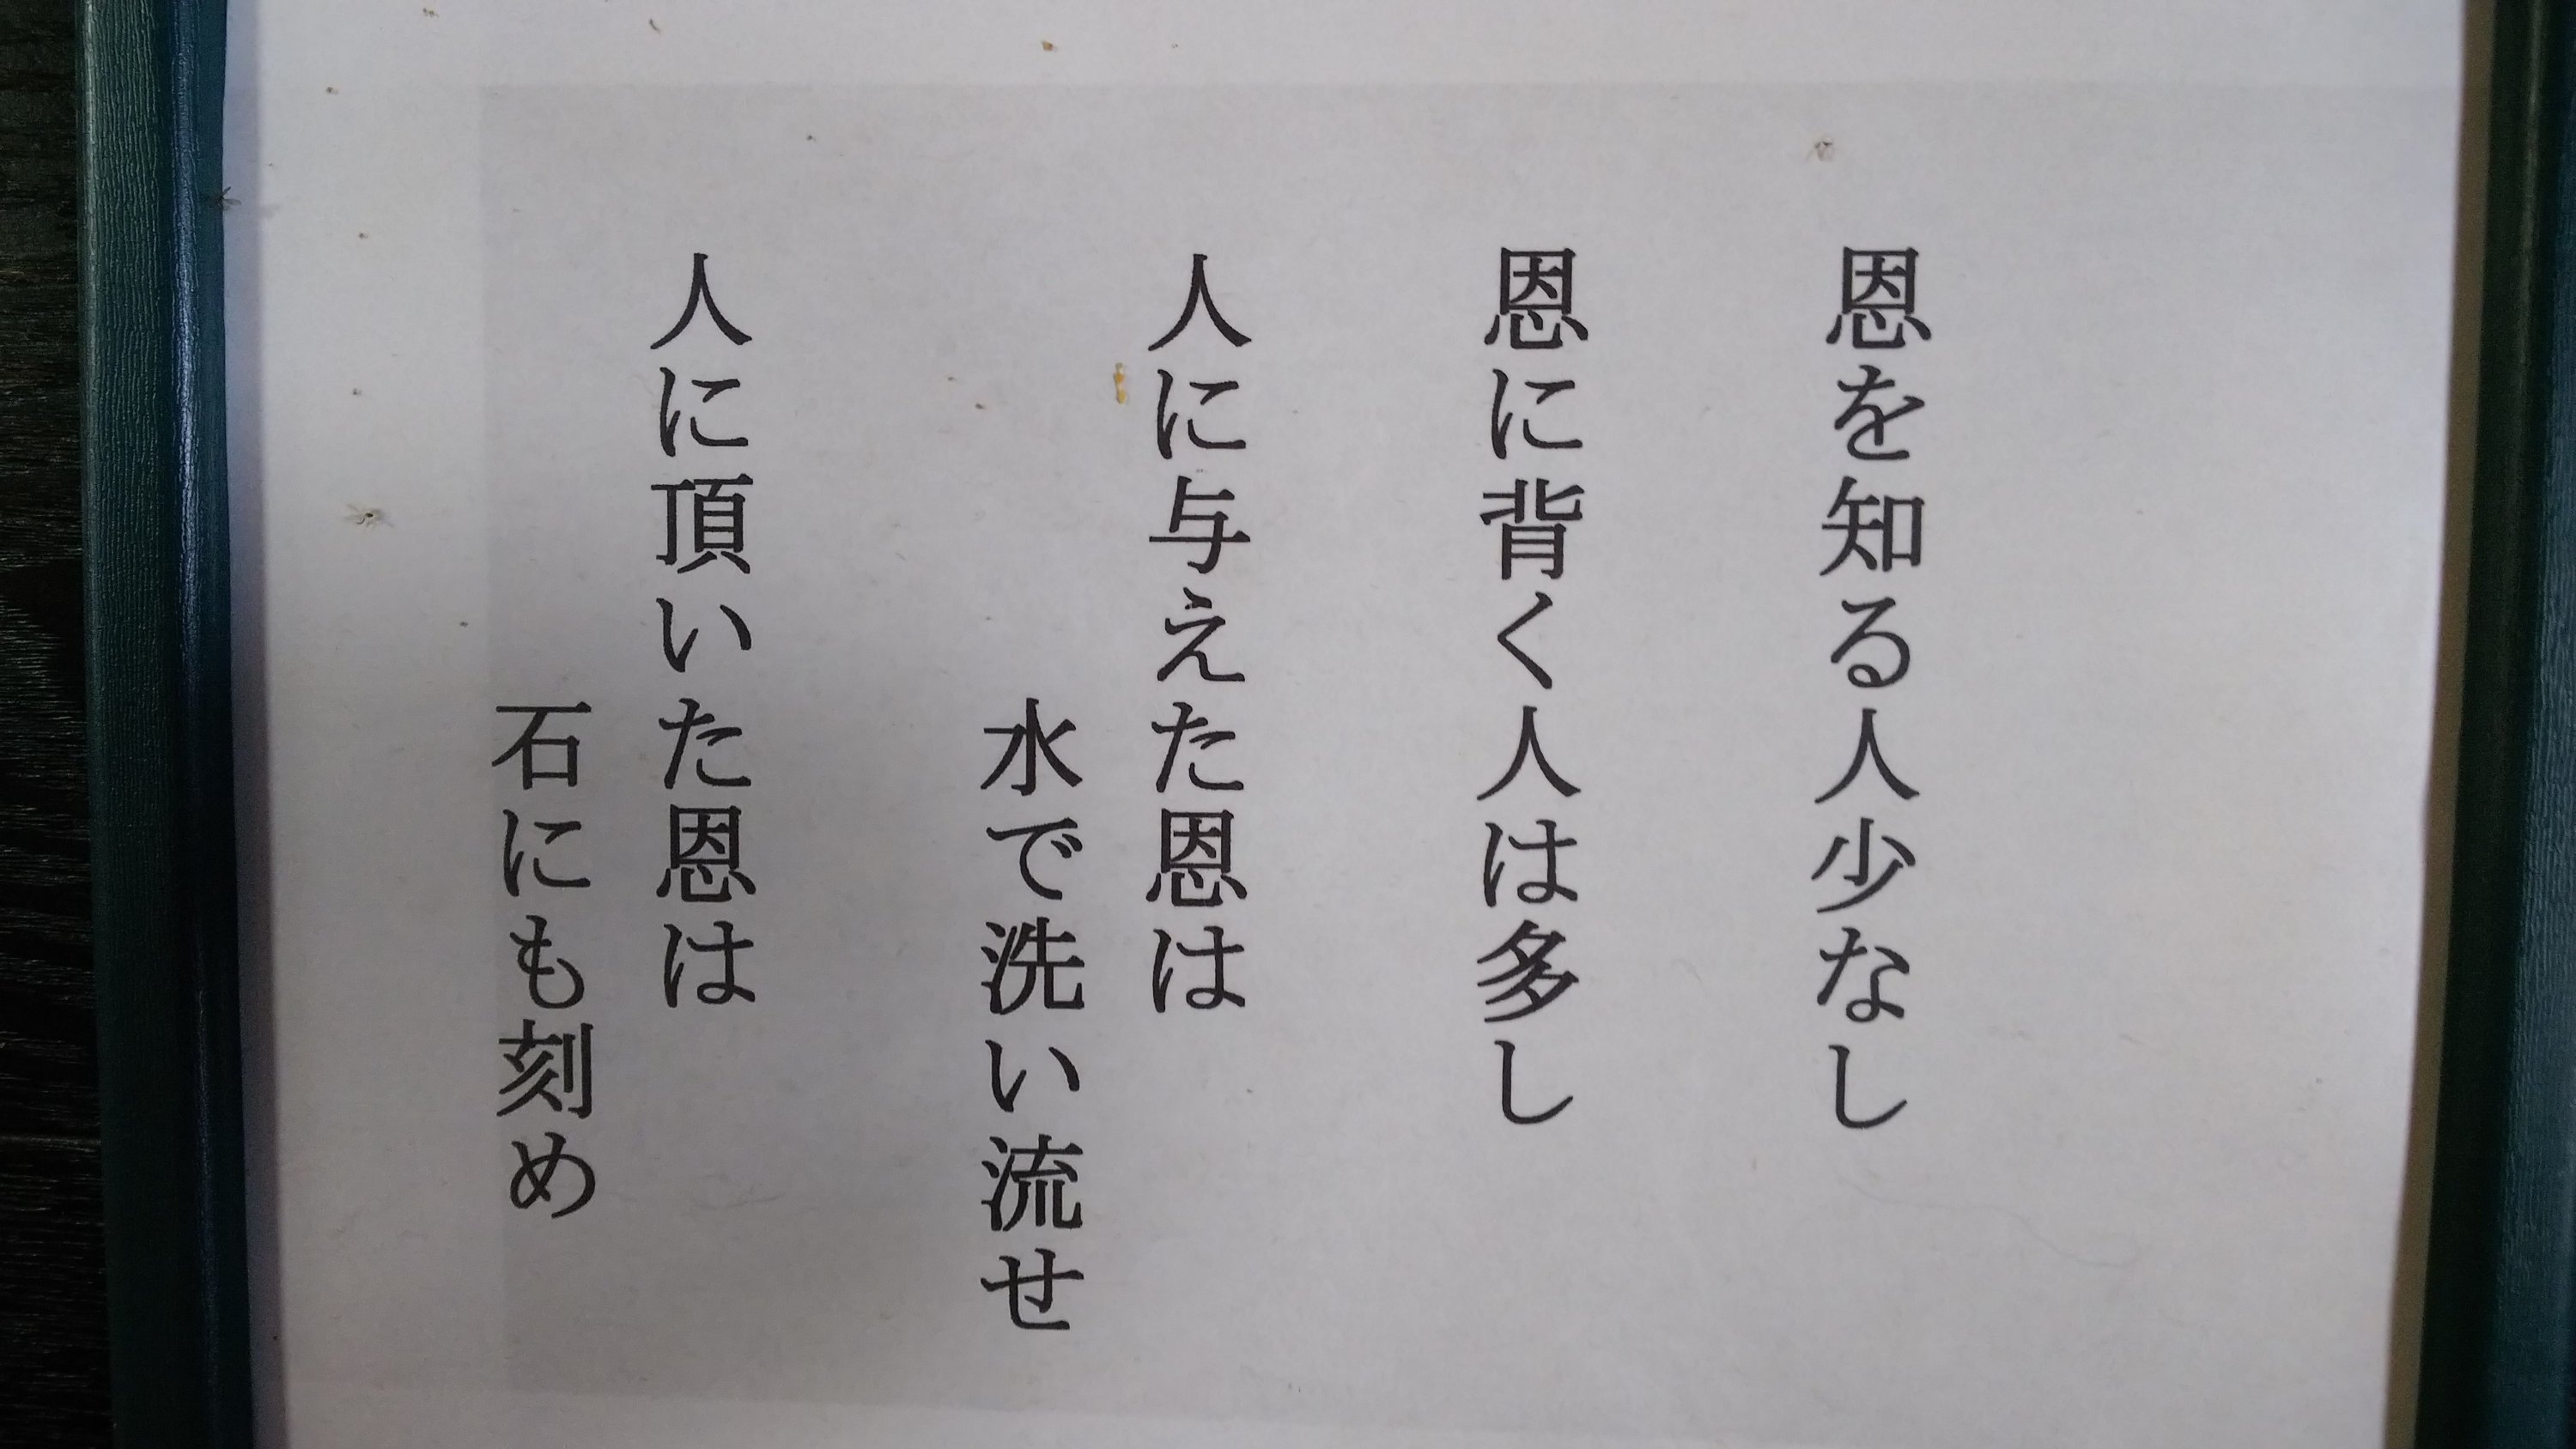 恩を知る人少なし
恩に背く人は多し
人に与えた恩は
水で洗い流せ
人に頂いた恩は
石にも刻め